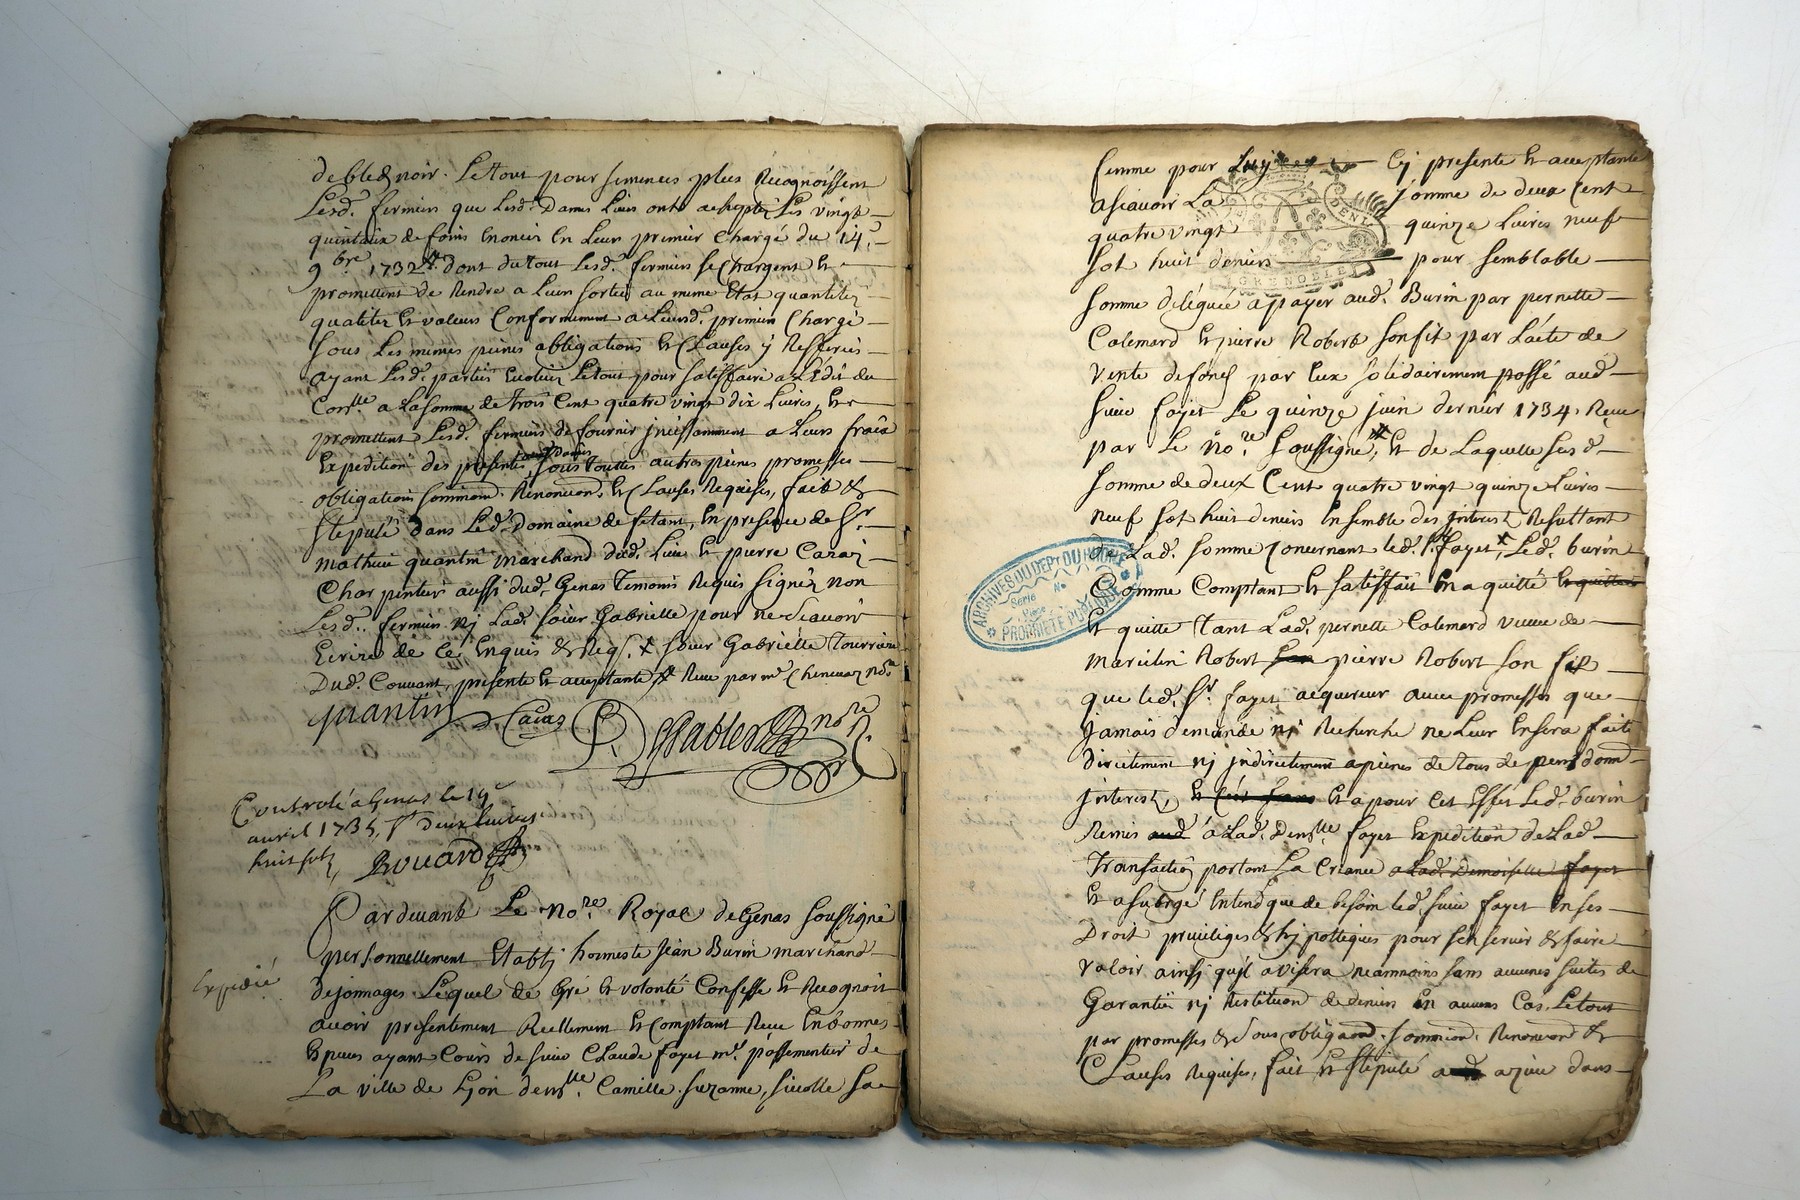 de bled noir. Le tout pour semences plus Recognoissent
Lesd. fermiers que Lesd. Dames Leurs ont achepté Les vingt
quintaux de foins Enoncés En Leur premier Chargé du 14.e
9bre 1732 dont du tout Lesd. fermiers se Chargent Et
promettent de Rendre a Leur sortie au meme Etat quantitez
qualitez Et valeurs Conformement a Leursd. premier Chargé
sous Les memes peines obligations Et Clauses y Refferées
ayant Lesd. parties Evalué Le tout pour satisffaire a L'Edit du
Con.lle a La somme de trois Cent quatre vingt dix Livres, Et
promettent Lesd. fermiers de fournir incessamment a Leurs frais
Expedition des presentes ausd. Dames sous touttes autres peines promesses
obligations soumission. Renonciaon. Et Clauses Requises, fait Et
stipulé dans Led. Domaine de En presence de Sr.
Mathieu quantin marchand dud. Lieu Et pierre Caraz
Charpentier aussi dud. Genas Temoins Requis signéz non
Lesd. fermiers nj Lad. soeur Gabrielle pour ne scavoir
Ecrire de ce Enquis & Req. + soeur Gabrielle Tourriere
Dud. Couvant presente Et acceptante Receu par me Chenavaz nore
quantin Caraz nore
Controlé a Genas le 19e
avril 1735, Rt deux livres
huit sols, Rouard
Pardevant Le nore. Royal de Genas soussigné
personnellement Etablj honneste Jean Burin marchand
Expedié
de jonnages Lequel de Gré Et volonté Confesse Et Recognoit
avoir presentement Reellement Et Comptant Receu En bonnes
Especes ayant Cours de sieur Claude fayet me. passementier de
La ville de Lyon demlle. Camille Suzanne, sa
femme pour Luy Cy presente Et acceptante
asçavoir La somme de deux Cent
quatre vingt quinze Livres neuf
sol huit deniers pour semblable
somme deléguée a payer aud. Burin par pernette
Calemard Et pierre Robert son fil par L'acte de
vente de fond par Eux solidairement passé aud.
sieur fayet Le quinze juin dernier 1734. Receu
par Le nore. soussigné, Et de Laquelle susd.
somme de deux Cent quatre vingt quinze Livres
neuf sol huit deniers Ensemble des interest Resultant
de Lad. somme Concernant led. Sr. fayet, Led. burin
Comme Comptant Et satisffait En a quitté Et quittera
Et quitte tant Lad. pernette Calemard veuve de
Marcelin Robert pierre Robert son fils
que led. Sr. fayet acquereur avec promesses que
jamais demande nj Recherche ne Leur Ensera faite
directement nj indirectement a peines de tous depens dom.
interest, Et a pour cet Effet Led. burin
Remis aud. a Lad. Demlle. fayet Expedition de Lad.
Transaction portant La Creance a Lad. Demoiselle fayet
Et a subrogé Entend que de besoin led. sieur fayet En ses
Droit privileiges & hypotteques pour sen servir & faire
valoir ainsj qu'jl avisera neanmoins sans aucunes suites de
Garantie nj Restitution de deniers En aucuns Cas, Le tout
par promesses & sous obligaon. soumission. Renonciaon &
Clauses Requises, fait Et stipulé dans
ARCHIVES DU DEPt DU RHONE
Serie No
Piece
PROPRIÉTÉ PUBLIQUE
GRENOBLE